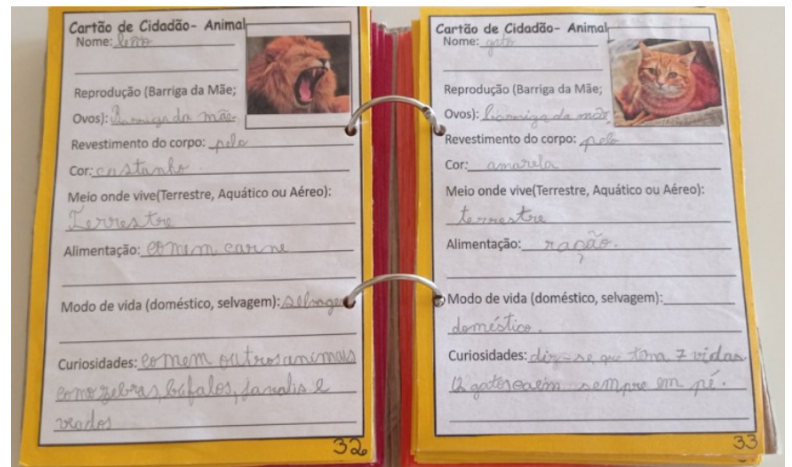 Cartão de Cidadão- Animal
Nome: leão
Reprodução (Barriga da Mãe;
Ovos): Barriga da mãe
Revestimento do corpo: pelo
Cor: castanho.
Meio onde vive(Terrestre, Aquático ou Aéreo):
Terrestre
Alimentação: comem carne
Modo de vida (doméstico, selvagem): selvagem
Curiosidades: comem outros animais
como zebras, búfalos, javalis e
veados
32
Cartão de Cidadão- Animal
Nome: gato
Reprodução (Barriga da Mãe;
Ovos): barriga da mãe
Revestimento do corpo: pelo
Cor: amarela
Meio onde vive(Terrestre, Aquático ou Aéreo):
terrestre
Alimentação: ração.
Modo de vida (doméstico, selvagem):
doméstico.
Curiosidades: diz-se que tem 7 vidas
gatos caem sempre em pé.
33